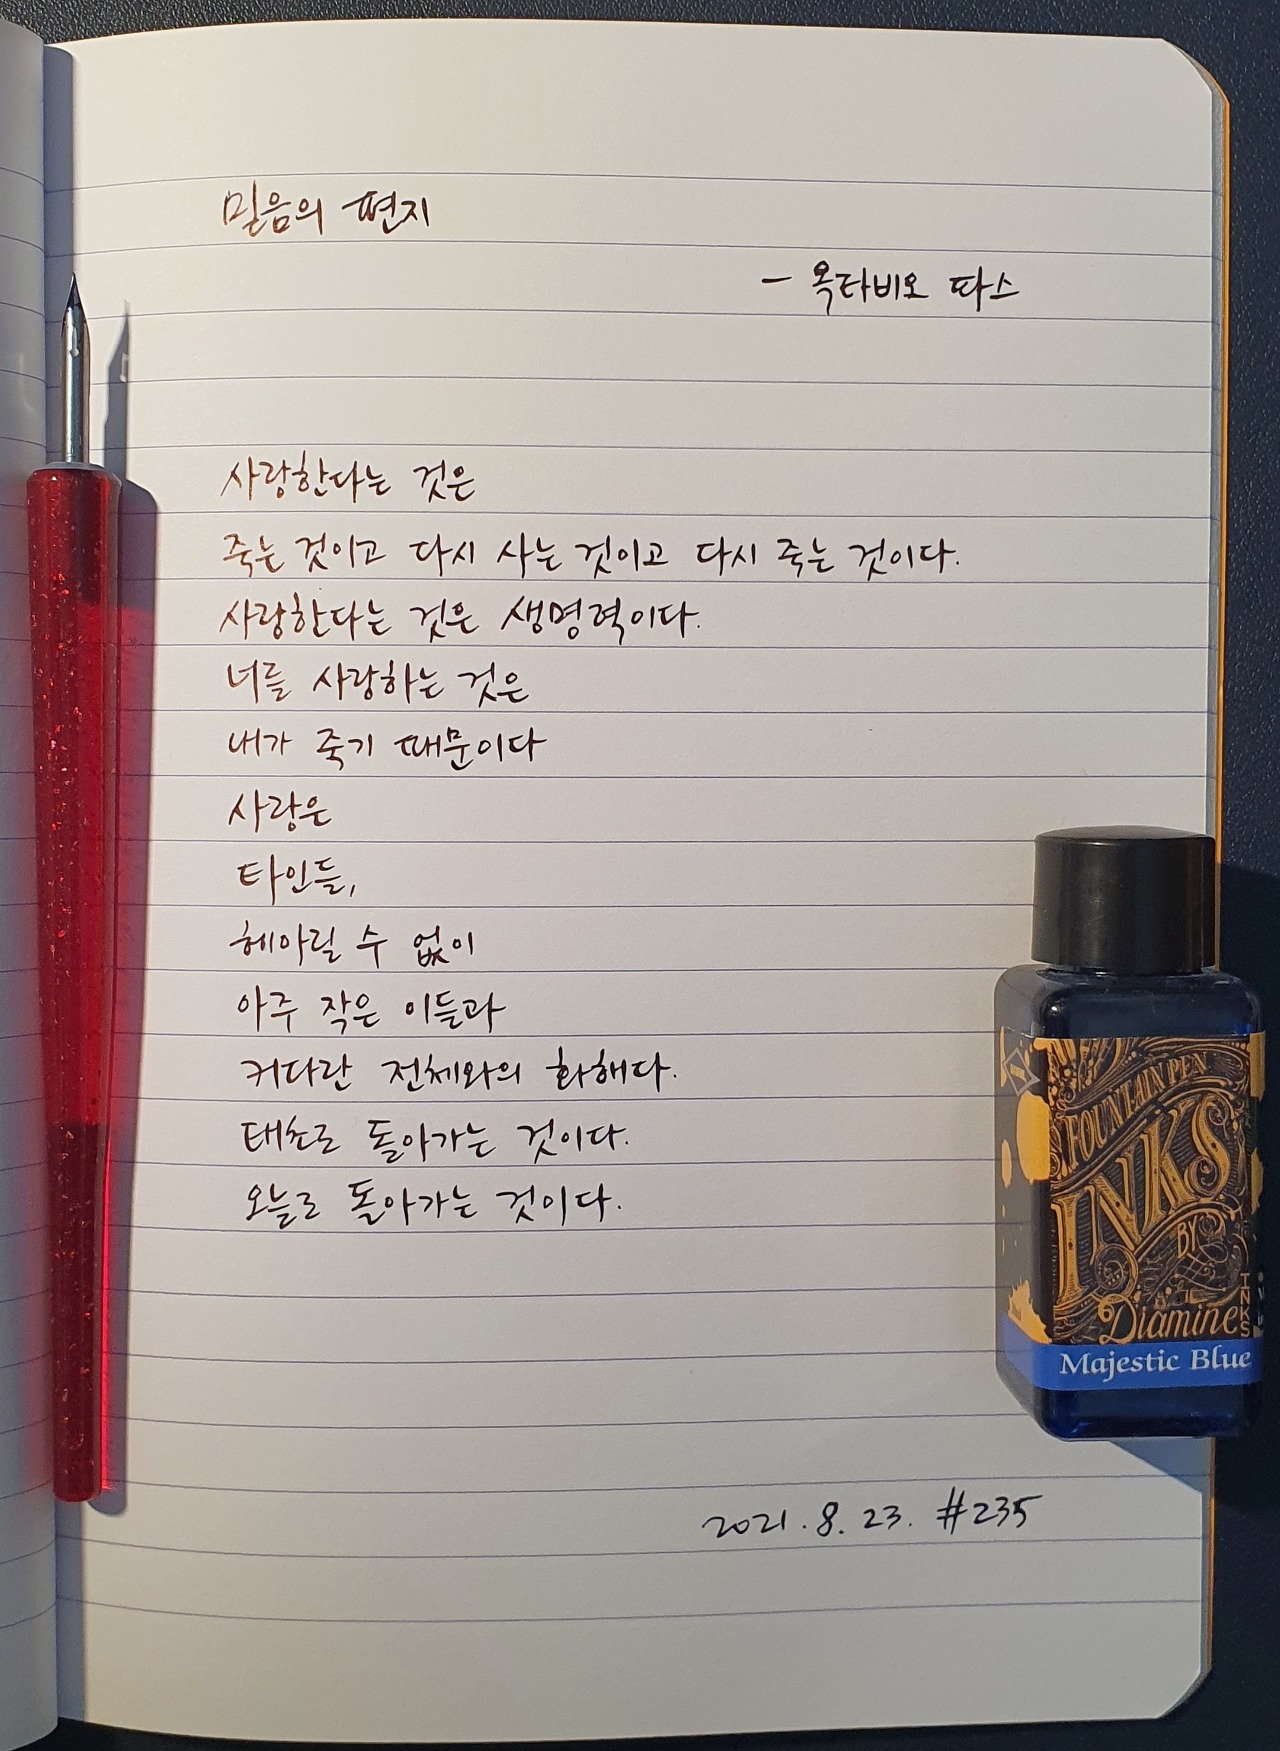 믿음의 편지
- 옥타비오 파스
사랑한다는 것은
죽는 것이고 다시 사는 것이고 다시 죽는 것이다.
사랑한다는 것은 생명력이다.
너를 사랑하는 것은
내가 죽기 때문이다
사랑은
타인들,
헤아릴 수 없이
아주 작은 이들과
커다란 전체와의 화해다.
태초로 돌아가는 것이다.
오늘로 돌아가는 것이다.
FOUNTAIN PEN
INKS
BY
Diamine
INKS
Majestic Blue
2021. 8. 23. #235